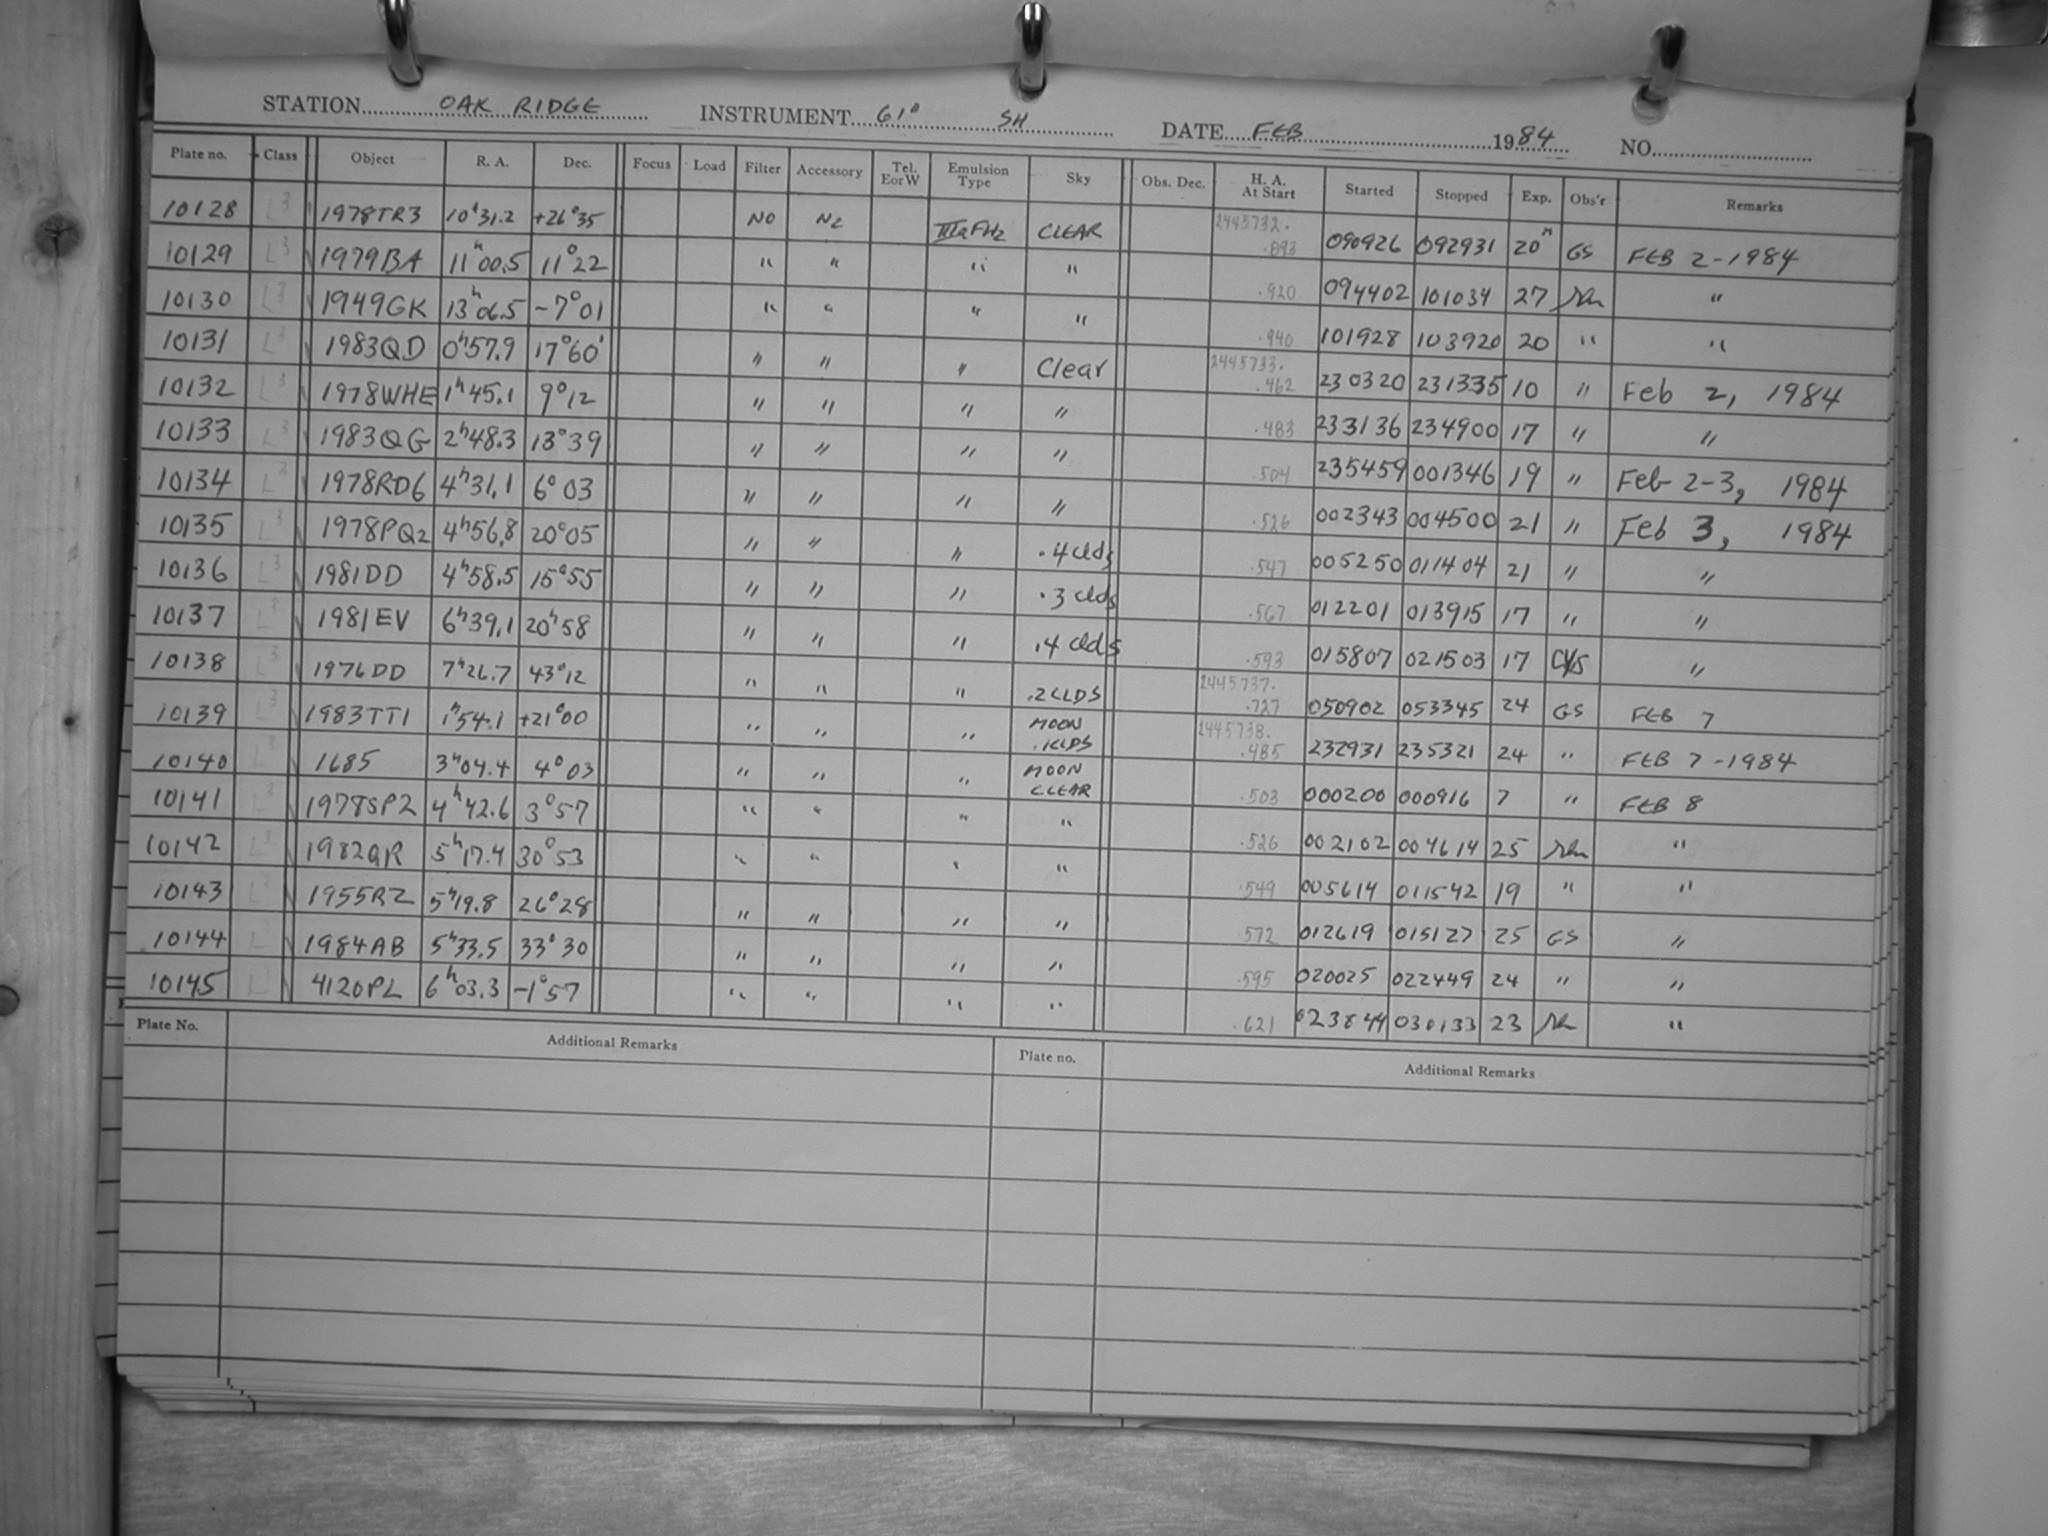 STATION OAK RIDGE INSTRUMENT 61" SH DATE FEB 1984 NO.
Plate no. Class Object R. A. Dec. Focus Load Filter Accessory Tel. E or W Emulsion Type Sky Obs. Dec. H. A. At Start Started Stopped Exp. Obs'r Remarks
10128 L3 1978TR3 10h31.2 +26°35 NO N2 IIIaFHz CLEAR 2445732. .893 090926 092931 20m GS FEB 2-1984
10129 L3 1979BA 11h00.5 11°22 " " " " .920 094402 101034 27 "
10130 L3 1949GK 13h06.5 -7°01 " " " " .940 101928 103920 20 " "
10131 L3 1983QD 0h57.9 17°60' " " " Clear 2445733. .462 230320 231335 10 " Feb 2, 1984
10132 L3 1978WHE 1h45.1 9°12 " " " " .483 233136 234900 17 " "
10133 L3 1983QG 2h48.3 13°39 " " " " .504 235459 001346 19 " Feb 2-3, 1984
10134 L2 1978RD6 4h31.1 6°03 " " " " .526 002343 004500 21 " Feb 3, 1984
10135 L3 1978PQ2 4h56.8 20°05 " " " .4 clds .547 005250 011404 21 " "
10136 L3 1981DD 4h58.5 15°55 " " " .3 clds .567 012201 013915 17 " "
10137 1981EV 6h39.1 20h58 " " " .4 clds .593 015807 021503 17 "
10138 L3 1976DD 7h26.7 43°12 " " " .2CLDS 2445737. .727 050902 053345 24 GS FEB 7
10139 L3 1983TT1 1h54.1 +21°00 " " " MOON .1CLDS 2445738. .485 232931 235321 24 " FEB 7-1984
10140 L3 1685 3h04.4 4°03 " " " MOON CLEAR .503 000200 000916 7 " FEB 8
10141 L3 1978SP2 4h42.6 3°57 " " " " .526 002102 004614 25 "
10142 L3 1982QR 5h17.4 30°53 " " " " .549 005614 011542 19 " "
10143 L3 1955RZ 5h19.8 26°28 " " " " .572 012619 015127 25 GS "
10144 L 1984AB 5h33.5 33°30 " " " " .595 020025 022449 24 " "
10145 4120PL 6h03.3 -1°57 " " " " .621 023844 030133 23 "
Plate No. Additional Remarks Plate no. Additional Remarks